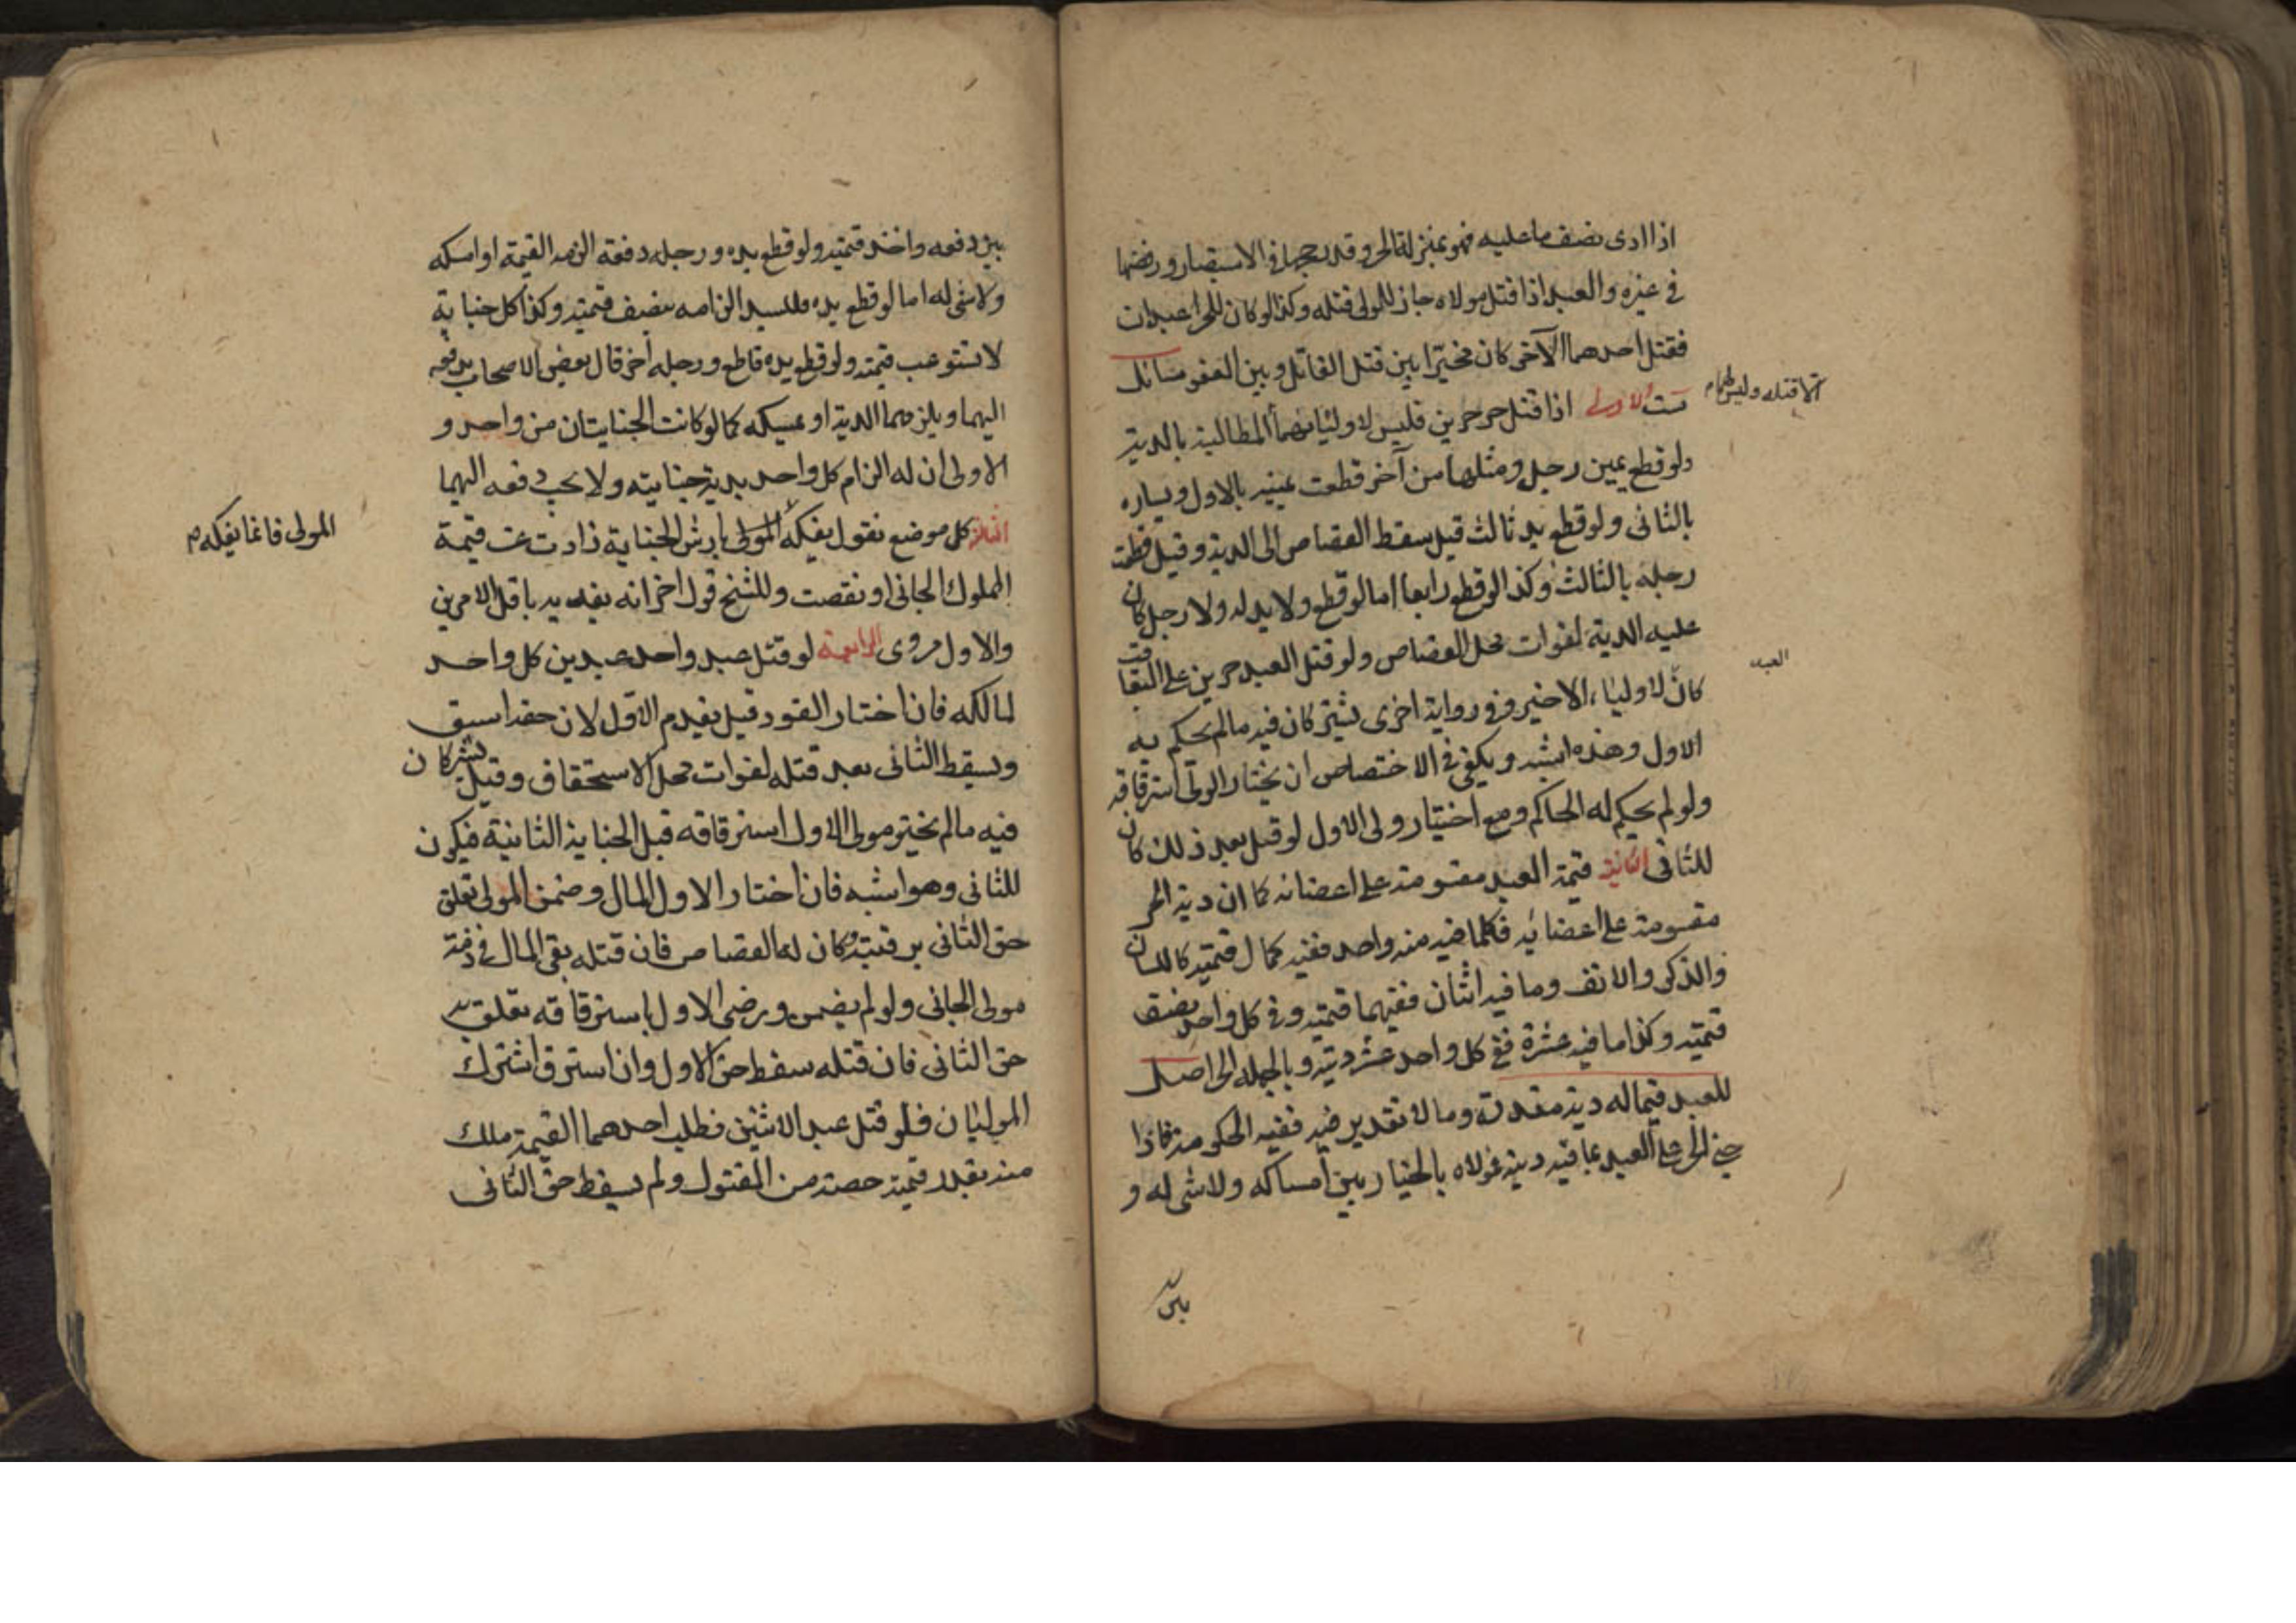 اذا ادى نصف ما عليه فهو بمنزلة الحر وقد رجحها في الاستبصار ورفضها
في غيره والعبد اذا قتل مولاه جاز للولى قتله وكذا لو كان للحر عبدان
فقتل احدهما الآخر كان مخيّرا بين قتل القاتل وبين العفو مسائل
ست الاولى اذا قتل حر حرين فليس لاوليائهما المطالبة بالدية
الا قتله وليس لهما م
ولو قطع يمين رجل ومثلها من آخر قطعت يمينه بالاول ويساره
بالثانى ولو قطع يد ثالث قيل سقط القصاص الى الدية وقيل قطعت
رجله بالثالث وكذا لو قطع رابعا اما لو قطع ولا يد له ولا رجل كان
عليه الدية لفوات محل القصاص ولو قتل العبد حرين على التعاقب
العبد
كان لاولياء الاخير وفى رواية اخرى يشتركان فيه ما لم يحكم به
الاول وهذه اشبه ويكفى فى الاختصاص ان يختار الولى استرقاقه
ولو لم يحكم له الحاكم ومع اختيار ولى الاول لو قتل بعد ذلك كان
للثانى الثانية قيمة العبد مقسومة على اعضائه كما ان دية الحر
مقسومة على اعضائه فكلما فيه منه واحد ففيه كمال قيمته كاللسان
والذكر والانف وما فيه اثنان ففيهما قيمته وفى كل واحد نصف
قيمته وكذا ما فيه عشرة ففى كل واحد عشر ديته وبالجمله الحر اصل
للعبد فيما له دية مقدرة وما لا تقدير فيه ففيه الحكومة فاذا
جنى الحر على العبد بما فيه ديته فمولاه بالخيار بين امساكه ولا شى له و
بين
بين دفعه واخذ قيمته ولو قطع يده ورجله دفعة الزمه القيمة او امسكه
ولا شى له اما لو قطع يده فللسيد الزامه بنصف قيمته وكذا كل جناية
لا تستوعب قيمته ولو قطع يده قاطع ورجله آخر قال بعض الاصحاب يدفعه
اليهما ويلزمهما الدية او يمسكه كما لو كانت الجنايتان من واحد و
الاولى ان له الزام كل واحد بدية جنايته ولا يجب دفعه اليهما
الثالثة كل موضع نقول يفكه المولى بارش الجناية زادت عن قيمة
المولى فانما يفكه م
المملوك الجانى او نقصت وللشيخ قول اخر انه يفديه باقل الامرين
والاول مروى الرابعة لو قتل عبد واحد عبدين كل واحد
لمالكه فان اختار القود قيل يقدم الاول لان حقه اسبق
ويسقط الثانى بعد قتله لفوات محل الاستحقاق وقيل يشتركان
فيه ما لم يختر مولى الاول استرقاقه قبل الجناية الثانية فيكون
للثانى وهو اشبه فان اختار الاول المال وضمن المولى تعلق
حق الثانى برقبته وكان له القصاص فان قتله بقى المال فى ذمة
مولى الجانى ولو لم يضمن ورضى الاول باسترقاقه تعلق به
حق الثانى فان قتله سقط حق الاول وان استرق اشترك
الموليان فلو قتل عبد الاثنين فطلب احدهما القيمة ملك
منه بقدر قيمة حصته من المقتول ولم يسقط حق الثانى